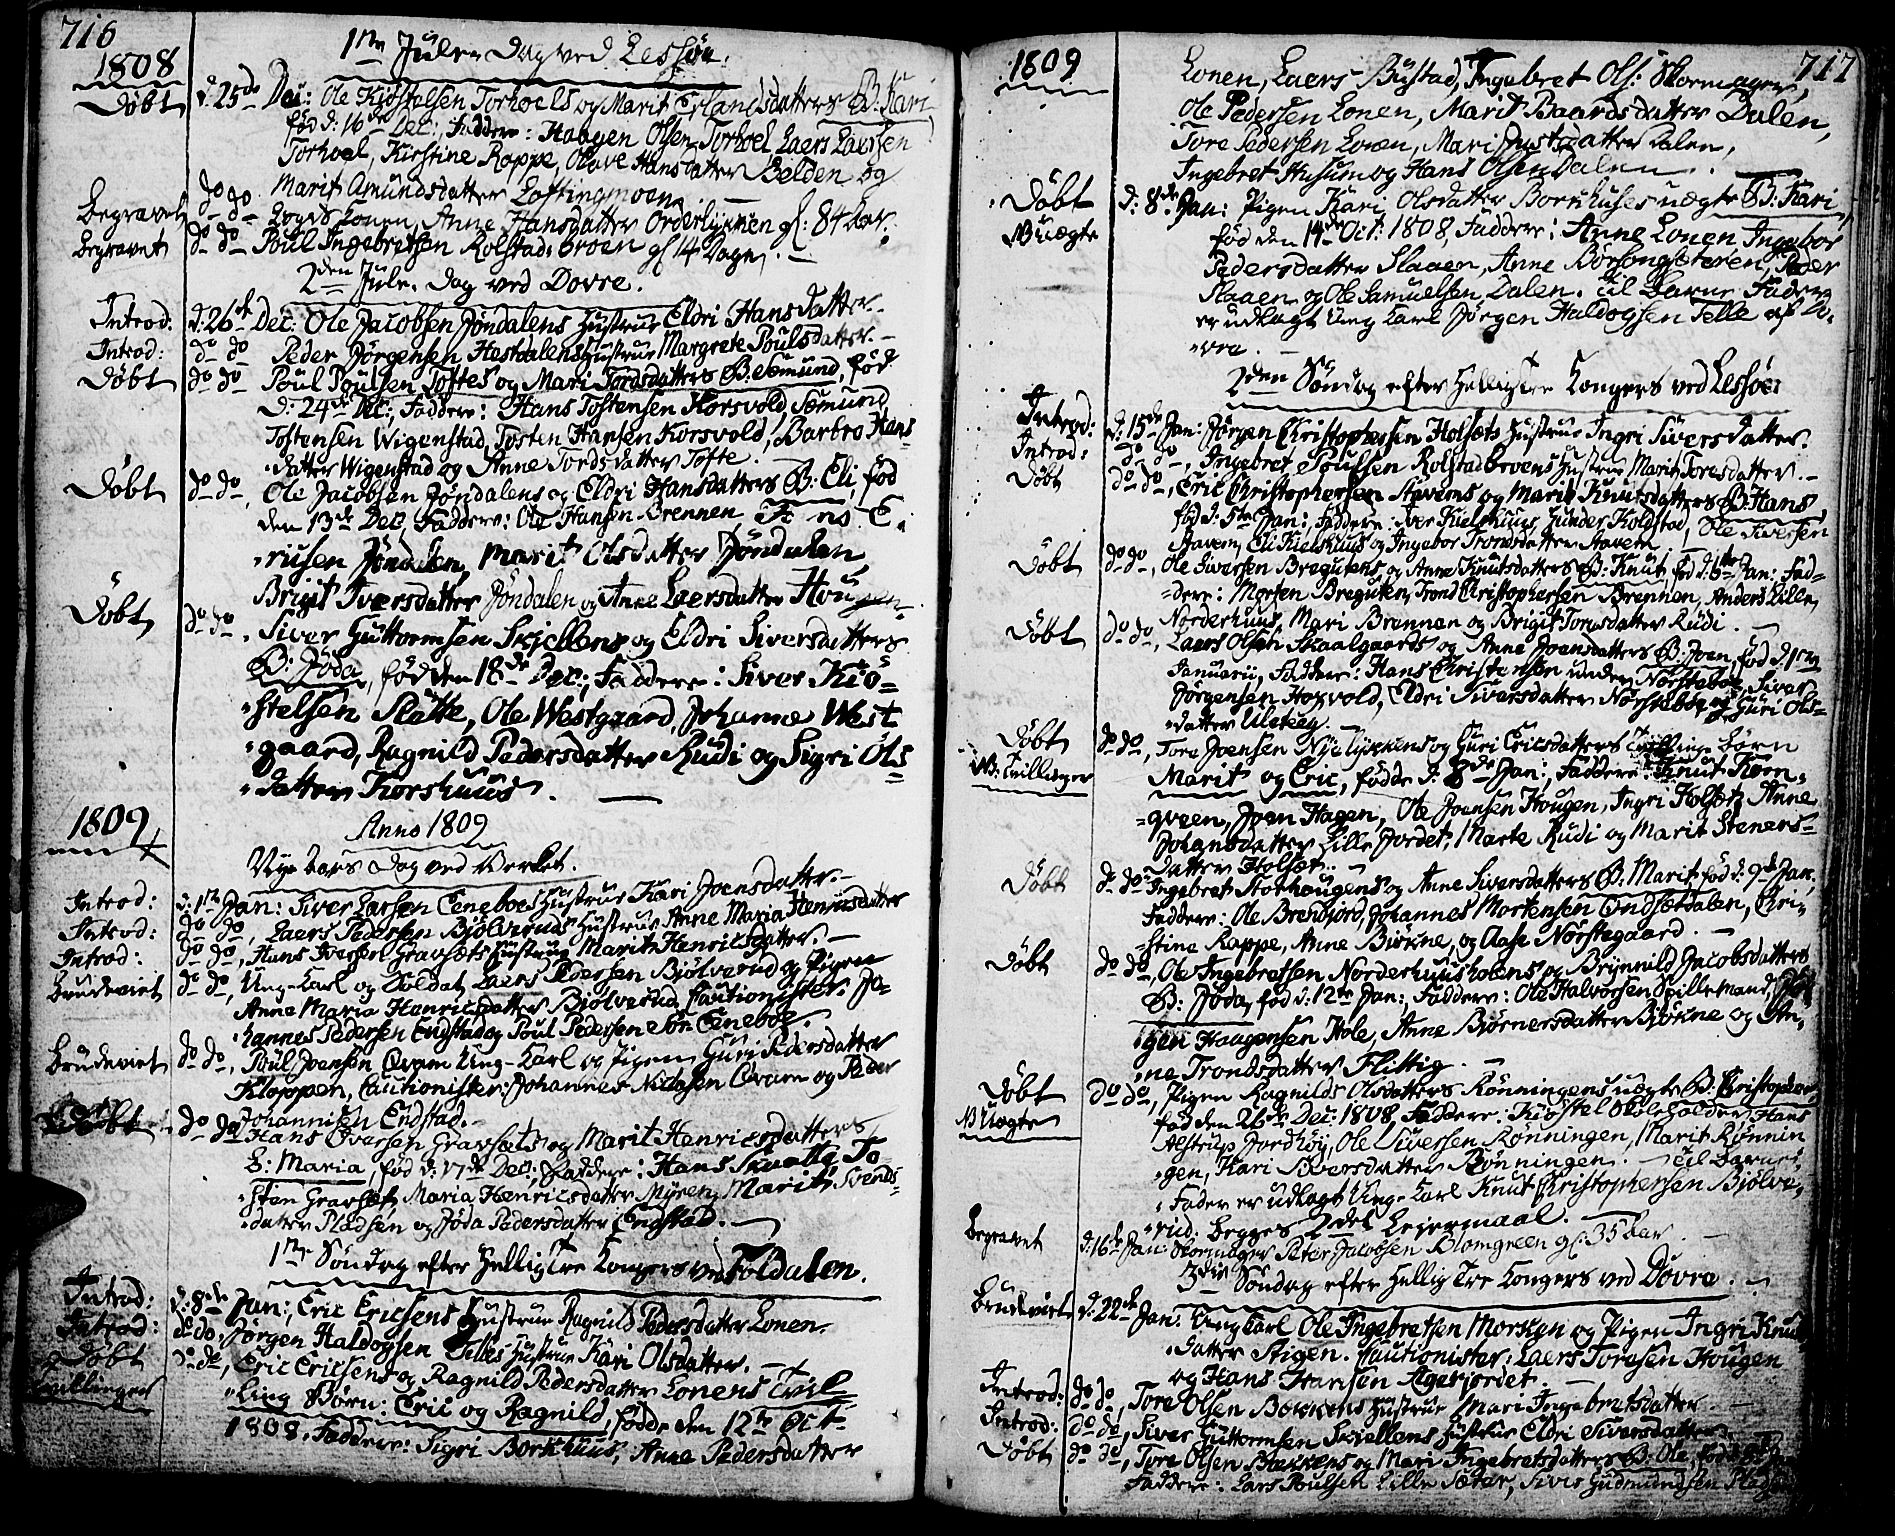 716
1808
1ste Jule-Dag ved Lessøe.
Døbt d: 25de Dec: Ole Kiøstelsen Torhoels og Marit Erlandsdatters B: Kari,
fød d: 16de Dec:, Faddere: Haagen Olsen Torhoel, Laers Laersen
Torhoel, Kirstine Rappe, Olave Hansdatter Belden og
Marit Amundsdatter Loftingmoen.
Begravet do do Logds Lonen, Anne Hansdatter Orderlykken gl: 84 Aar.
Begravet do do Poul Ingebretsen Rolstadbroen gl 14 Dage. —
2den Jule-Dag ved Dovre.
Introd: d: 26de Dec: Ole Jacobsen Jøndalens Hustrue Eldri Hansdatter. —
Introd: do do Peder Jørgensen Hestdalens Hustrue Margrete Poulsdatter. —
Døbt do do Poul Poulsen Toftes og Mari Tordsdatters B: Sæmund, fød
d: 24de Dec:, Faddere: Hans Tostensen Korsvold, Sæmund
Tostensen Wigenstad, Tosten Hansen Korsvold, Barbro Hans-
datter Wigenstad og Anne Tordsdatter Tofte. —
Døbt do do, Ole Jacobsen Jøndalens og Eldri Hansdatters B: Eli, fød
den 13de Dec: Faddere: Ole Hansen Brennen E-
ricsen Jøndalen, Marit Olsdatter Jøndalen,
Brigit Iversdatter Jøndalen og Anne Laersdatter Hougen.
Døbt do do, Siver Guttormsen Skjellens og Eldri Siversdatters
B: Jøda, fød den 18de Dec:, Faddere: Siver Kiø-
stelsen Slätte, Ole Westgaard, Johanne West-
gaard, Ragnild Pedersdatter Rudi og Sigri Ols-
datter Korshuus. —
1809
Anno 1809
Nye Aars Dag ved Verket.
Introd: d: 1ste Jan: Siver Larsen Eeneboes Hustrue Kari Joensdatter. —
Introd: do do, Laers Pedersen Bjølveruds Hustrue Anne Maria Henricsdatter
Introd: do do, Hans Iversen Gravsæts Hustrue Marit Henricsdatter. —
Brudeviet do do, Ung-Karl og Soldat Laers Pedersen Bjølverud og Pigen
Anne Maria Henricsdatter Bjølverud, Cautionister: Jo-
hannes Pedersen Endstad og Poul Pedersen Sön Eeneboe.
Brudeviet do do, Poul Joensen Qvam Ung-Karl og Pigen Guri Pedersdatter
Kloppen, Cautionister: Johannes Nielsen Qvam og Peder
Johannisen Endstad. —
Døbt do do Hans Iversen Gravsæts og Marit Henricsdatters
B: Maria, fød d: 17de Dec:, Faddere: Hans Skotte, To-
sten Gravset, Maria Henricsdatter Myren, Marit Svends-
datter Pladsen og Jøda Pedersdatter Endstad. —
1ste Søndag efter Hellig Tre Kongers ved Foldalen.
Introd: d: 8de Jan: Eric Ericsens Hustrue Ragnild Pedersdatter Lonen.
Introd: do do, Jørgen Haldogsen Telles Hustrue Kari Olsdatter. —
Døbt do do, Eric Ericsens og Ragnild Pedersdatter Lonens Tvil-
Tvillinger ling Børn: Eric og Ragnild, fødde den 12te Oct
1808. Faddere: Sigri Borkhuus, Anne Pedersdatter
717
1809
Lonen, Laers Bustad, Ingebret Ols: Skomager,
Ole Pedersen Lonen, Marit Baardsdatter Dalen,
Tore Pedersen Lonen, Mari Justsdatter Dalen,
Ingebret Husum og Hans Olsen Dalen. —
Døbt d: 8de Jan: Pigen Kari Olsdatter Borkhuses uægte B: Kari,
B: uægte fød den 14de Oct: 1808, Faddere: Anne Lonen, Ingebor
Pedersdatter Slaaen, Anne Børsongseteren, Peder
Slaaen og Ole Samuelsen Dalen. Til Barne Fader
er udlagt Ung Karl Jørgen Haldogsen Telle af Do-
vre. —
2den Søndag efter Hellig Tre Kongers ved Lessøe:
Introd: d: 15de Jan: Jørgen Christophersen Holsets Hustrue Ingri Siversdatter.
Introd: do do, Ingebret Poulsen Rolstadbroens Hustrue Marit Toresdatter. —
Døbt do do, Eric Christophersen Stavems og Marit Knutsdatters B: Hans,
fød d: 5te Jan:, Faddere: Iver Kielshuus, Gunder Kolstad, Ole Siversen
Stavem, Eli Kielshuus og Ingebor Trondsdatter Stavem. —
Døbt do do, Ole Siversen Bregutens og Anne Knutsdatters B: Knut, fød d: 6te Jan: Fad-
dere: Morten Breguten, Trond Christophersen Brennen, Anders Lille
Norderhuus, Mari Brennen og Brigit Toresdatter Rudi. —
Døbt do do, Laers Olsen Skaalgaards og Anne Joensdatters B: Joen, fød d: 1ste
Januarii, Faddere: Hans Christensen under Norsteboe, Siver
Jørgensen Hoxvold, Eldri Siversdatter Norsteboe og Guri Ols-
datter Uleberg. —
Døbt do do, Tore Joensen Nyelykkens og Guri Ericsdatters Tvilling Børn
B: Tvillinger Marit og Eric, fødde d: 8de Jan:, Faddere: Knut Korn-
qveen, Joen Hagen, Ole Joensen Hougen, Ingri Holset, Anne
Johansdatter Lille Jordet, Marte Rudi og Marit Steners-
datter Holset. —
Døbt do do, Ingebret Storhougens og Anne Siversdatters B: Marit, fød d: 9de Jan:,
Faddere: Ole Brendjord, Johannes Mortensen Endsetdalen, Chri-
stine Rappe, Anne Biøkne, og Aase Norstegaard. —
Døbt do do, Ole Ingebretsen Norderhuusholens og Brynnild Jacobsdatters
B: Jøda, fød d: 12te Jan:, Faddere: Ole Halvorsen Spillemand, Jør-
gen Haagensen Hole, Anne Bjørnersdatter Bjøkne og An-
ne Trondsdatter Flittig. —
Døbt do do, Pigen Ragnilds Olsdatters Rønningens uægte B: Christopher,
B: Uægte fød den 26de Dec: 1808, Faddere: Kiøstel Skoleholder, Hans
Alstrup Jordhøy, Ole Siversen Rønningen, Marit Rønnin-
gen, Kari Siversdatter Rønningen. — Til Barne-
Fader er udlagt Ung-Karl Knut Christophersen Bjølve-
rud. Begges 2det Lejermaal. —
Begravet d: 16de Jan: Skomager Peter Jacobsen Blomgreen gl: 35 Aar. —
3die Søndag efter Hellig Tre Kongers ved Dovre. —
Brudeviet d: 22de Jan: Ung Karl Ole Ingebretsen Morken og Pigen Ingri Knuds-
datter Stigen. Cautionister: Laers Toresen Hougen
og Hans Hansen Agerjordet. —
Introd: do do, Tore Olsen Bakkens Hustrue Mari Ingebretsdatter. —
Introd: do do, Siver Guttormsen Skiellens Hustrue Eldri Siversdatter.
Døbt do do, Tore Olsen Bakkens og Mari Ingebretsdatters B: Ole, fød
Faddere: Lars Poulsen Lille Sæter, Siver Gudmundsen